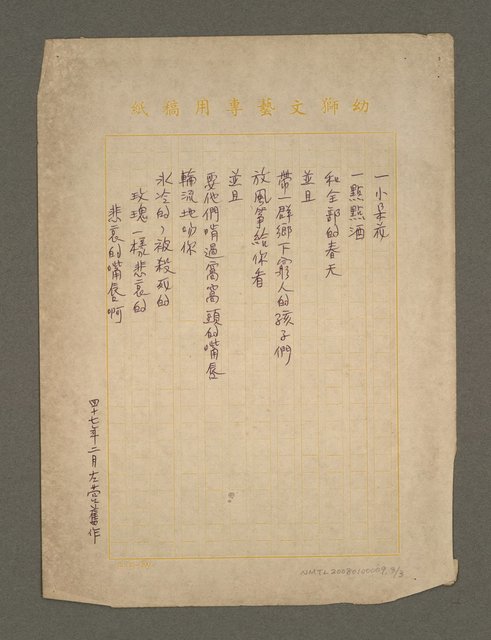 幼獅文藝專用稿紙
一小朵花
一點點酒
和全部的春天
並且
帶一群鄉下窮人的孩子們
放風箏給你看
並且
要他們啃過窩窩頭的嘴唇
輪流地吻你
冰冷的，被殺死的
玫瑰一樣悲哀的
悲哀的嘴唇啊
四十七年二月左營舊作
NMTL20080100069, 3/3